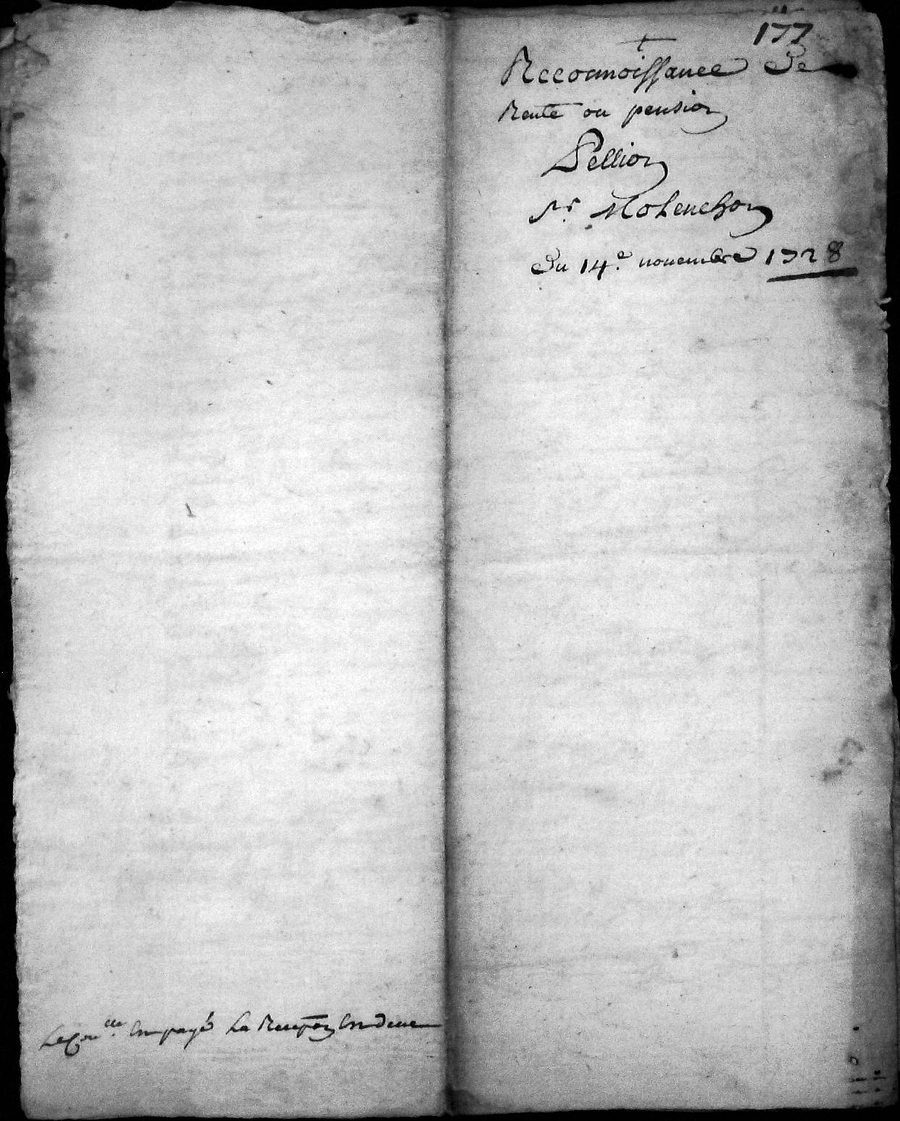 177
Reconnoissance De
Rente ou pension
Pellion
Sr. Molenchon
Du 14e. novembre 1728
payé La